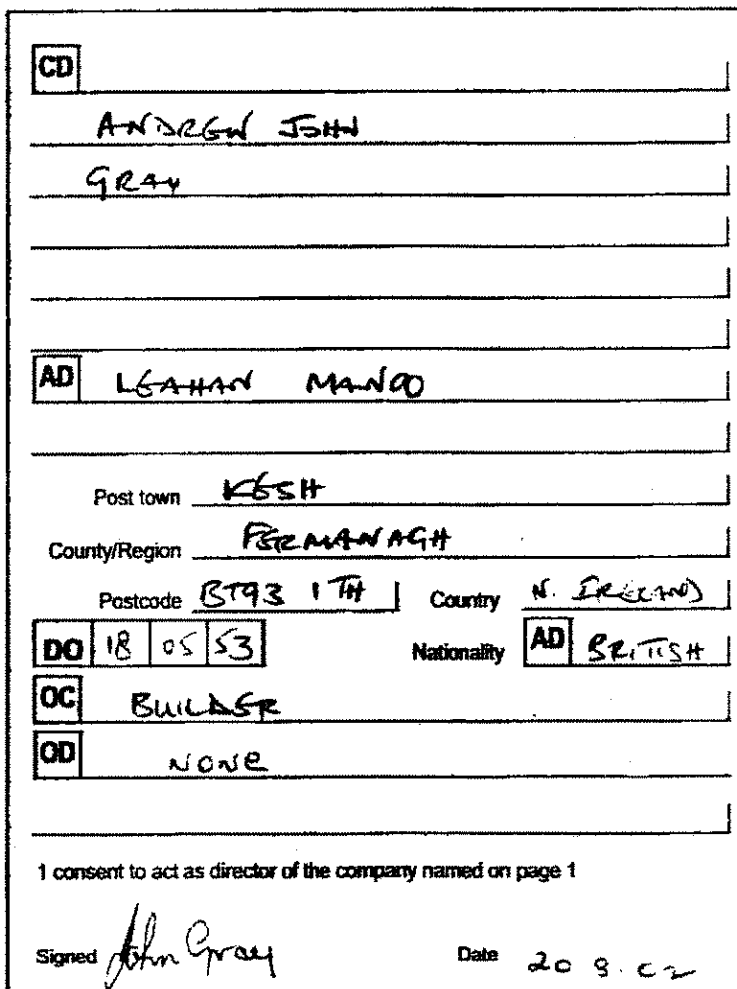 CD
ANDREW JOHN
GRAY
AD LEAHAN MANOO
Post town KESH
County/Region FERMANAGH
Postcode BT93 1TH Country N. IRELAND
DO 18 05 53 Nationality AD BRITISH
OC BUILDER
OD NONE
1 consent to act as director of the company named on page 1
Signed John Gray Date 20 9. 02